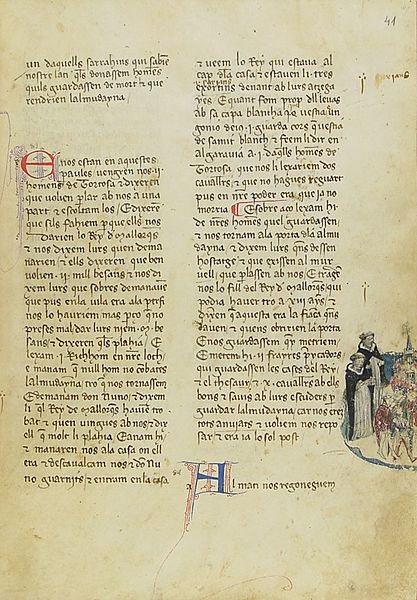 41
un daquells sarrahins qui sabie
nostre lati q̄ls donassem homēs
quils guardassen de mort & que
rendrien lalmudayna,
E nos estan en aquestes
paules vengren nos .ii.
homens de Tortosa & dixeren
que volien plar ab nos a una
part & escoltam los, E dixerē
que sils fahiem pquels nos
Darien lo Rey d' mallorq̄s
& nos dixem lurs quen dema
narien, & ells dixeren que ben
volien .ii. mill besans & nos di
xem lurs que sobres demanauē
que pus en la vila era ala perfi
nos lo hauriem mas pco q̄ no
preses mal dar lurs niem .m. be
sans, & dixeren q̄ls plahia, E
lexam .i. Richhom en nr̄e loch
e manam q̄ null hom no cobates
lalmudayna tro q̄ nos tornassem
E demanam don Nuno, & dixem
li q̄l Rey de mallorq̄s hauiē tro
bat & quen vingues ab nos & dix
ell q̄ molt li plahia, Eanam hi
& manaren nos ala casa on ell
era & descaualcam nos & dō Nu
no guarnits & entram en la casa
& veem lo Rey qui estaua al
cap dla casa & estauen li .iii.
exortins denant ab lurs atzega
yes, E quant fom prop dll leuas
ab sa capa blancha q̄ vestia un
gonio deio .i. guarda cors q̄ uestia
de samit blanch & frem li dir en
algarauia a .i. daq̄lls homēs de
Tortosa que nos li lexariem dos
cauallrs & que no hagues reguart
pus en nr̄e poder era que ia no
morria, E sobre aço lexam hi
de nr̄es homēs quel guardassen,
& nos tornam ala porta dla almu
dayna, & dixem lurs q̄ns dessen
hostatge & que exissen al mur
uell, que plassen ab nos, E tragē
nos lo fill del Rey d' mallorq̄s qui
podia hauer tro a xiii ays &
dixen q̄ aquesta era la fiança q̄ns
dauen, & quens obririen la porta
E nos guardassem q̄y metriem,
E metem hi .ii. frayres p̄ycadors
qui guardassen les cases del Rey
& el thesaur, & .x. cauallrs ab ells
bons & sauis ab lurs escuders p
guardar lalmudayna, car nos erē
tots anujats & voliem nos repo
sar & era ia lo sol post
A l mati nos regoneguem